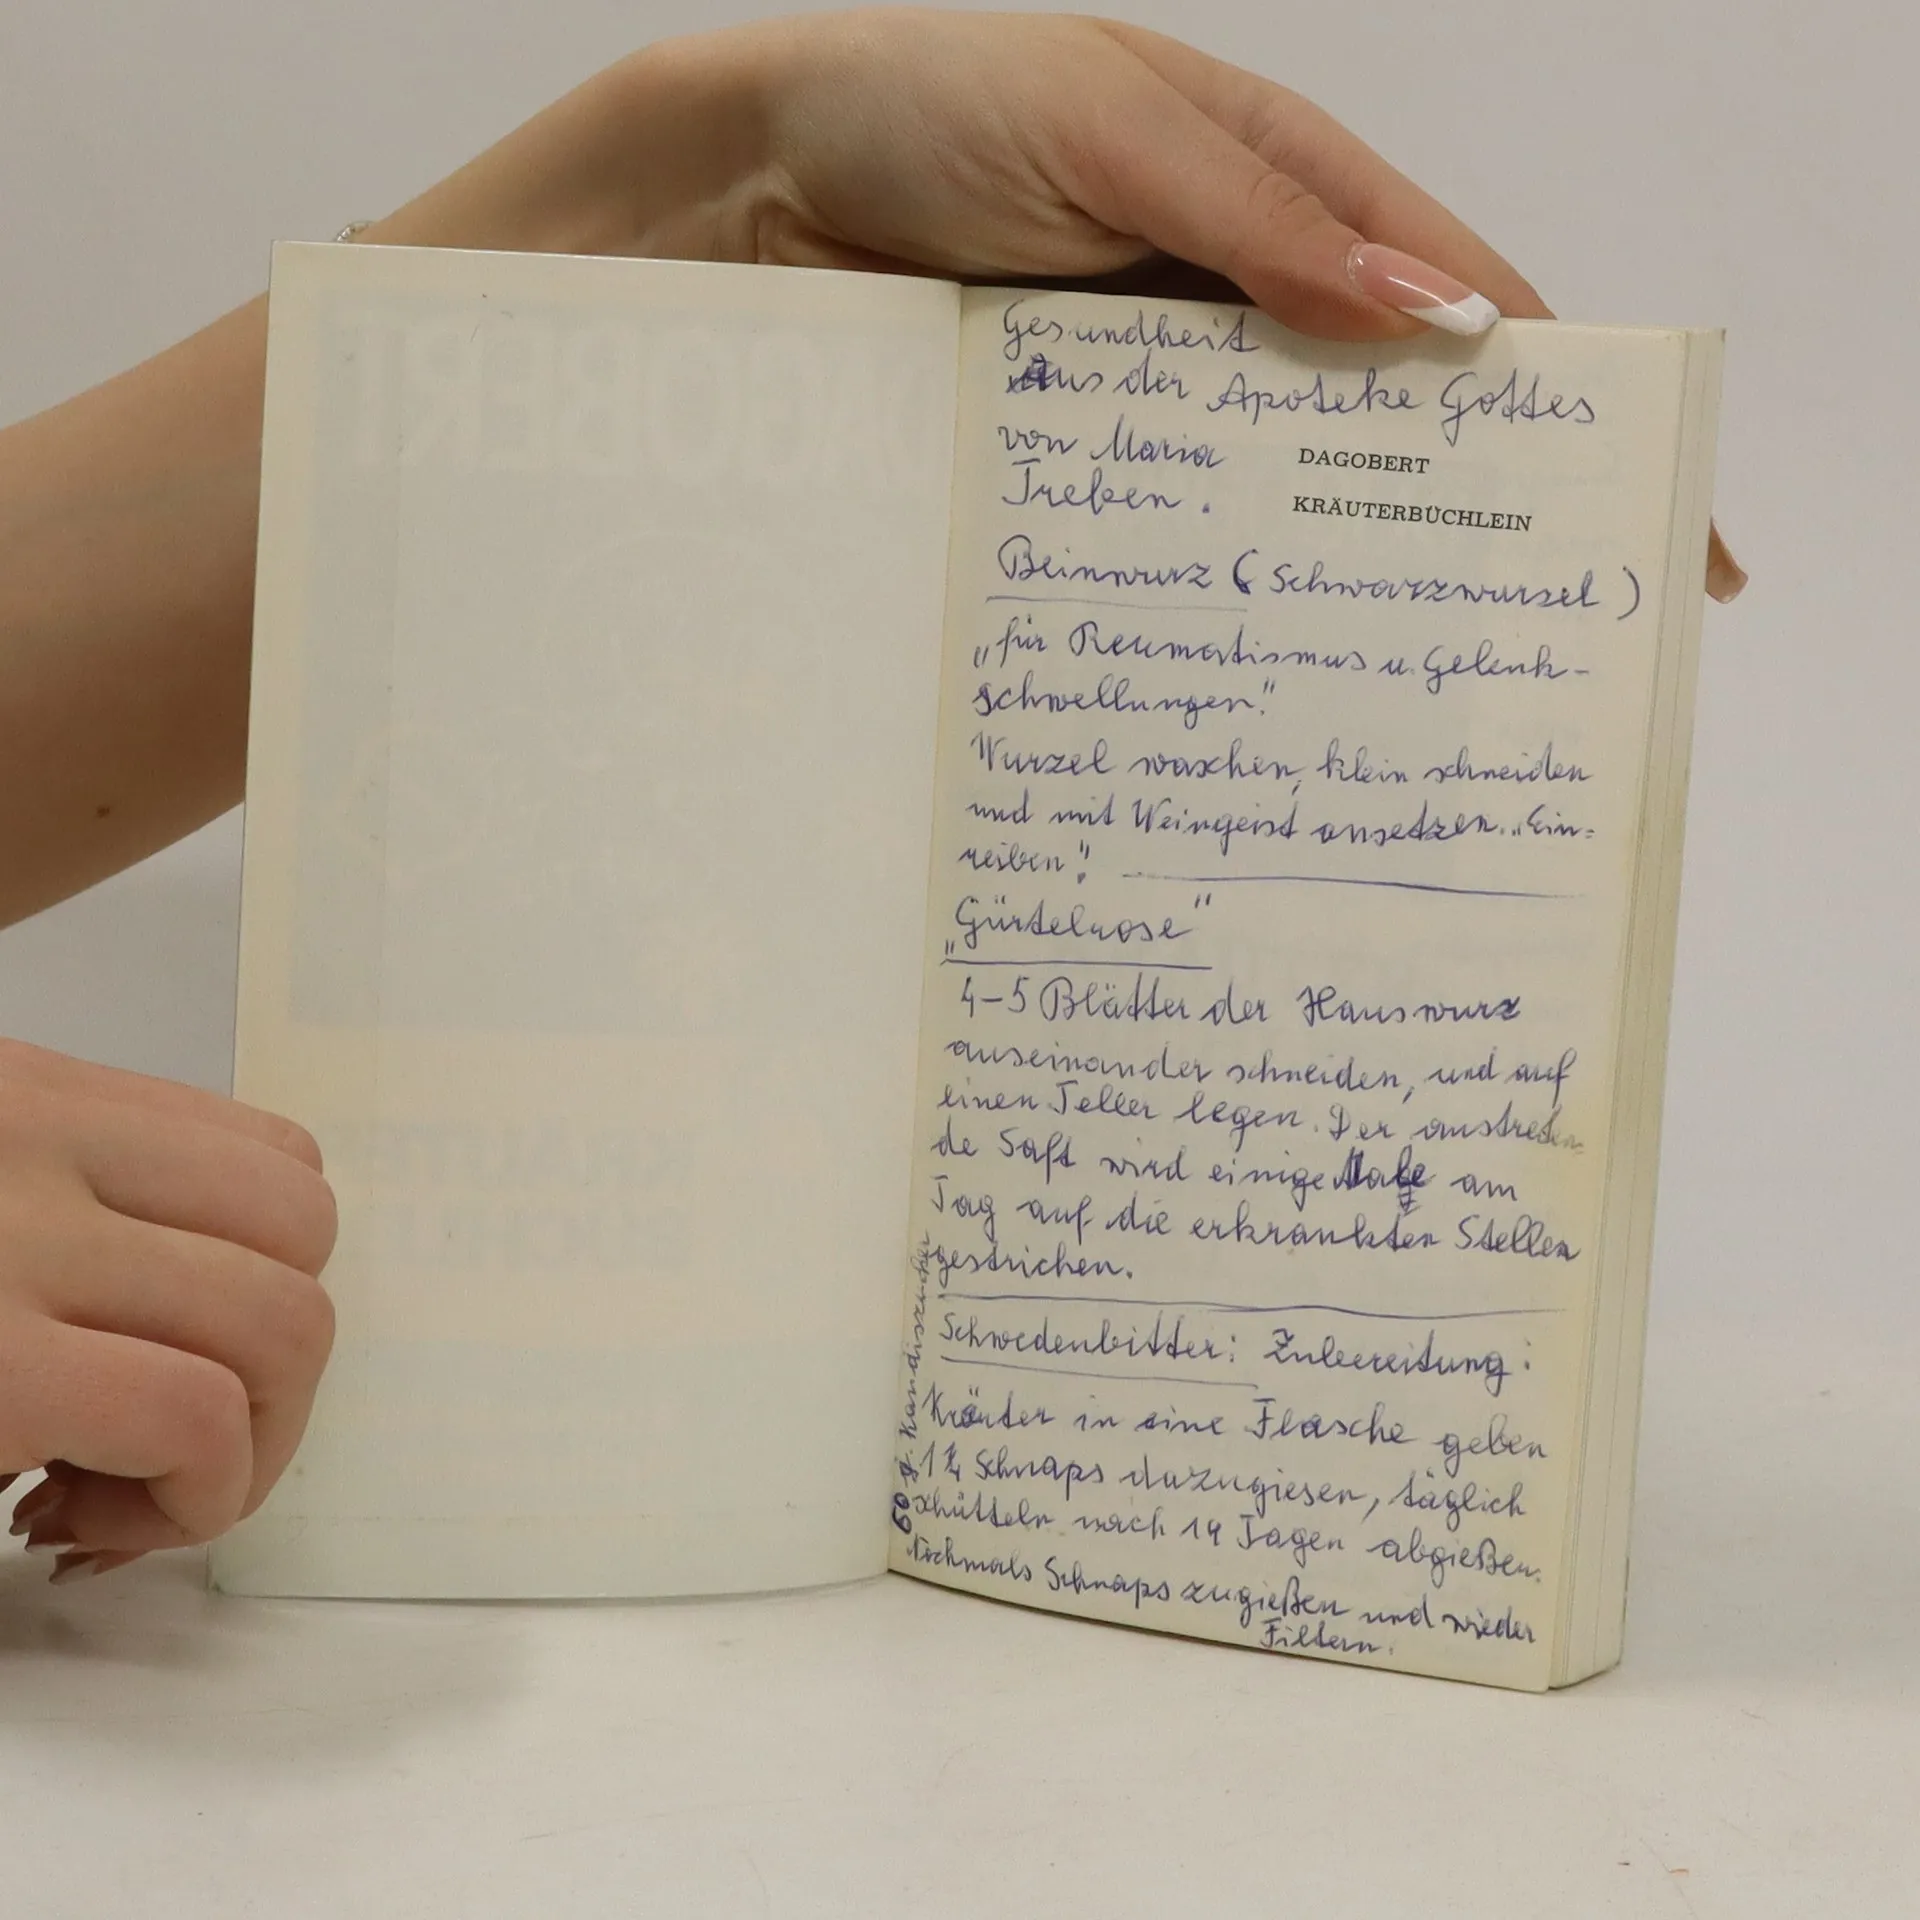 Gesundheit
Aus der Apoteke Gottes
von Maria
Treben.
DAGOBERT
KRÄUTERBÜCHLEIN
Beinwurz (Schwarzwurzel)
„für Reumatismus u. Gelenk-
schwellungen."
Wurzel waschen, klein schneiden
und mit Weingeist ansetzen. „Ein=
reiben"!
„Gürtelrose"
4-5 Blätter der Hauswurz
auseinander schneiden, und auf
einen Teller legen. Der austreten=
de Saft wird einige Male am
Tag auf die erkrankten Stellen
gestrichen.
Schwedenbitter: Zubereitung:
Kräuter in eine Flasche geben
Schnaps dazugiesen, täglich
schütteln nach 14 Tagen abgießen.
Nochmals Schnaps zugießen und wieder
Filtern.
60 g. Kandiszucker